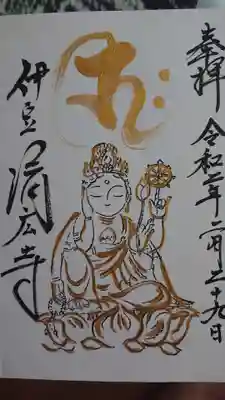 奉拝 令和二年二月二十九日
伊豆 済広寺